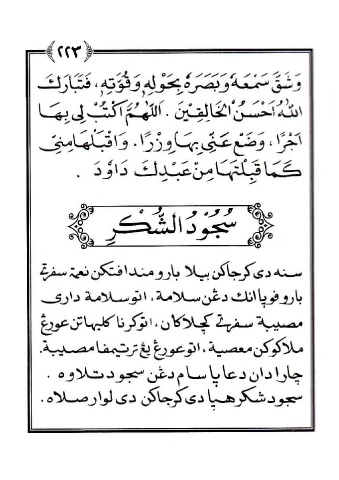 ٢٢٣
وَشَقَّ سَمْعَهُ وَبَصَرَهُ بِحَوْلِهِ وَقُوَّتِهِ، فَتَبَارَكَ
اللهُ أَحْسَنُ الْخَالِقِيْنَ. اَللّٰهُمَّ اكْتُبْ لِي بِهَا
أَجْرًا، وَضَعْ عَنِّي بِهَا وِزْرًا. وَاقْبَلْهَا مِنِّي
كَمَا قَبِلْتَهَا مِنْ عَبْدِكَ دَاوُدَ.
سُجُوْدُ الشُّكْرِ
سنه دى كرجاكن بيلا بارو مندافتكن نعمة سفرتى
بارو ڤوڽا انك دڠن سلامة، اتو سلامة دارى
مصيبة سفرتى كچلاكان، اتو كرنا كليهاتن عورڠ
ملاكوكن معصية، اتو عورڠ يڠ ترتيمفا مصيبة.
چارا دان دعاڽا سام دڠن سجود تلاوه.
سجود شكر هاڽا دى كرجاكن دى لوار صلاه.